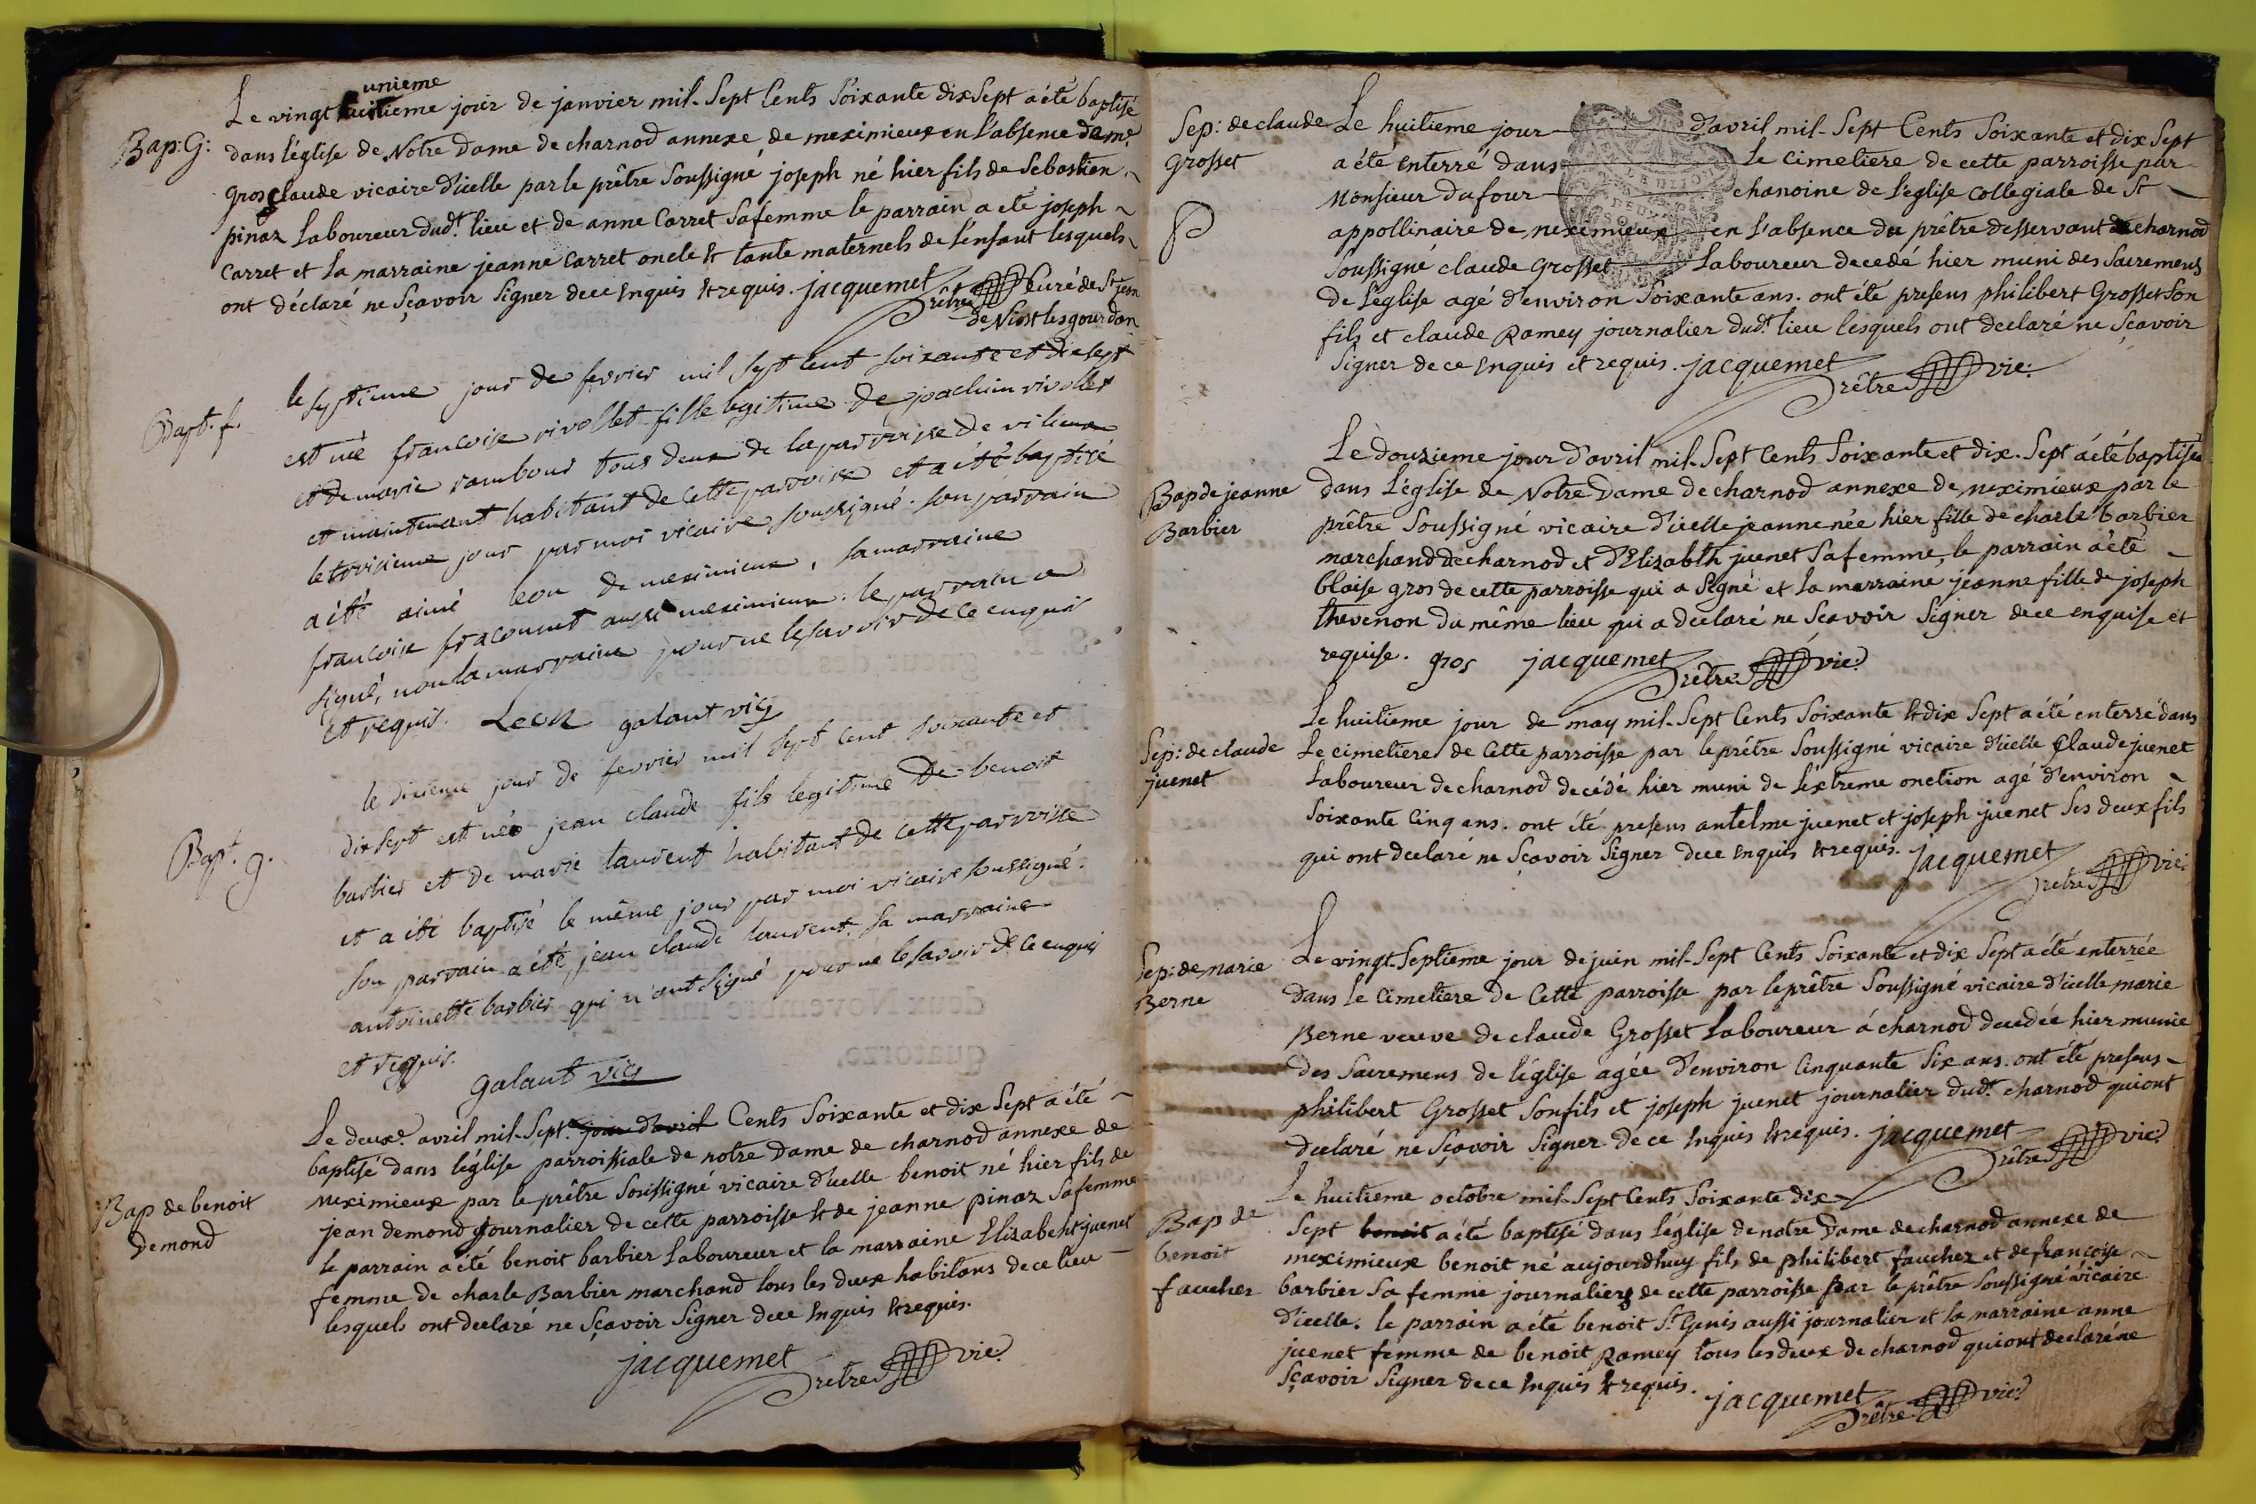 unieme
Le vingt huitieme jour de janvier mil-Sept Cents Soixante dix Sept a été baptisé
Bap: G:
dans l'église de Notre Dame de charnod annexe de meximieux en l'absence de mr.
gros claude vicaire d'icelle par le prêtre Soussigné joseph né hier fils de Sebastien
pinaz Laboureur dud.t lieu et de anne Carret Sa femme le parrain a été joseph
Carret et la marraine jeanne Carret oncle & tante maternels de l'enfant lesquels
ont déclaré ne Sçavoir Signer dece Enquis & requis. jacquemet
Prêtre Curé de St jean
de Niost les gourdan
Bapt. f.
le septieme jour de fevrier mil sept cent soixante et dix sept
est née francoise rivollet fille legitime de joachim rivollet
et de marie rambour tous deux de la parroisse de vilieux
et maintenant habitant de cette parroisse et a été baptisé
le troisieme jour par moi vicaire soussigné. son parrain
a été aimé leon de meximieux, sa marraine
francoise fracounet aussi meximieux. le parrain a
signé, non la marraine pour ne le savoir de ce enquis
et requis. Leon galant vic
Bapt. g.
le dixieme jour de fevrier mil sept cent soixante et
dix sept est née jean claude fils legitime de benoit
barbier et de marie laurent habitant de cette parroisse
et a été baptisé le même jour par moi vicaire soussigné.
son parrain a été jean claude laurent. sa marraine
antoinette barbier qui n'ont signé pour ne le savoir de ce enquis
et requis.
galant vic
Le deuxe. avril mil-Sept. jour d'avril Cents Soixante et dix Sept a été
baptisé dans l'église parroissiale de notre Dame de charnod annexe de
Bap de benoit
Demond
meximieux par le prêtre Soussigné vicaire d'icelle benoit né hier fils de
jean demond journalier de cette parroisse & de jeanne pinaz Sa femme
le parrain a été benoit barbier Laboureur et la marraine Elizabeht juenet
femme de charle Barbier marchand tous les deux habitans de ce lieu
lesquels ont declaré ne Sçavoir Signer dece Enquis & requis.
jacquemet
Prêtre vic.
Sep: de claude
Grosset
Le huitieme jour d'avril mil-Sept Cents Soixante et dix Sept
a été enterré dans le cimetiere de cette parroisse par
Monsieur dufour chanoine de l'eglise collegiale de St
appollinaire de meximieux en l'absence du prêtre desservant de charnod
Soussigné claude Grosset Laboureur decedé hier muni des Sacremens
de l'eglise agé d'environ Soixante ans. ont été presens philibert Grosset Son
fils et claude Ramey journalier dud.t lieu lesquels ont declaré ne Sçavoir
Signer de ce Enquis et requis. jacquemet
Prêtre vic.
Bap de jeanne
Barbier
Le douzieme jour d'avril mil-Sept Cents Soixante et dix-Sept a été baptisée
dans l'église de Notre Dame de charnod annexe de meximieux par le
prêtre Soussigné vicaire d'icelle jeanne née hier fille de charle barbier
marchand de charnod et d'Elizabth juenet Sa femme, le parrain a été
blaise gros de cette parroisse qui a Signé et la marraine jeanne fille de joseph
thevenon du même lieu qui a declaré ne Sçavoir Signer dece enquise et
requise. gros jacquemet
Prêtre vic.
Sep: de claude
juenet
Le huitieme jour de may mil-Sept Cents Soixante & dix Sept a été enterré dans
Le cimetiere de Cette parroisse par le prêtre Soussigné vicaire d'icelle Claude juenet
Laboureur de charnod decédé hier muni de l'éxtreme onction agé d'environ
Soixante Cinq ans. ont été presens antelme juenet et joseph juenet Ses deux fils
qui ont declaré ne Sçavoir Signer dece Enquis & requis. jacquemet
Prêtre vic.
Sep: de Marie
Berne
Le vingt-Septieme jour de juin mil-Sept Cents Soixante et dix Sept a été enterrée
dans le Cimetiere de Cette parroisse par le prêtre Soussigné vicaire d'icelle marie
Berne veuve de claude Grosset Laboureur á charnod decedée hier munie
des Sacremens de l'église agée d'environ Cinquante Six ans. ont été presens
philibert Grosset Son fils et joseph juenet journalier dud.t charnod qui ont
declaré ne Sçavoir Signer de ce Enquis & requis. jacquemet
Prêtre vic.
Bap de
benoit
faucher
Le huitieme octobre mil-Sept Cents Soixante dix
Sept benoit a été baptisé dans l'église de notre Dame de charnod annexe de
meximieux benoit né aujourdhuy fils de philibert faucher et de françoise
barbier Sa femme journaliers de cette parroisse par le prêtre Soussigné vicaire
d'icelle. le parrain a été benoit St. Genis aussi journalier et la marraine anne
juenet femme de benoit Ramey tous les deux de charnod qui ont declaré ne
Sçavoir Signer de ce Enquis & requis. jacquemet
Prêtre vic.